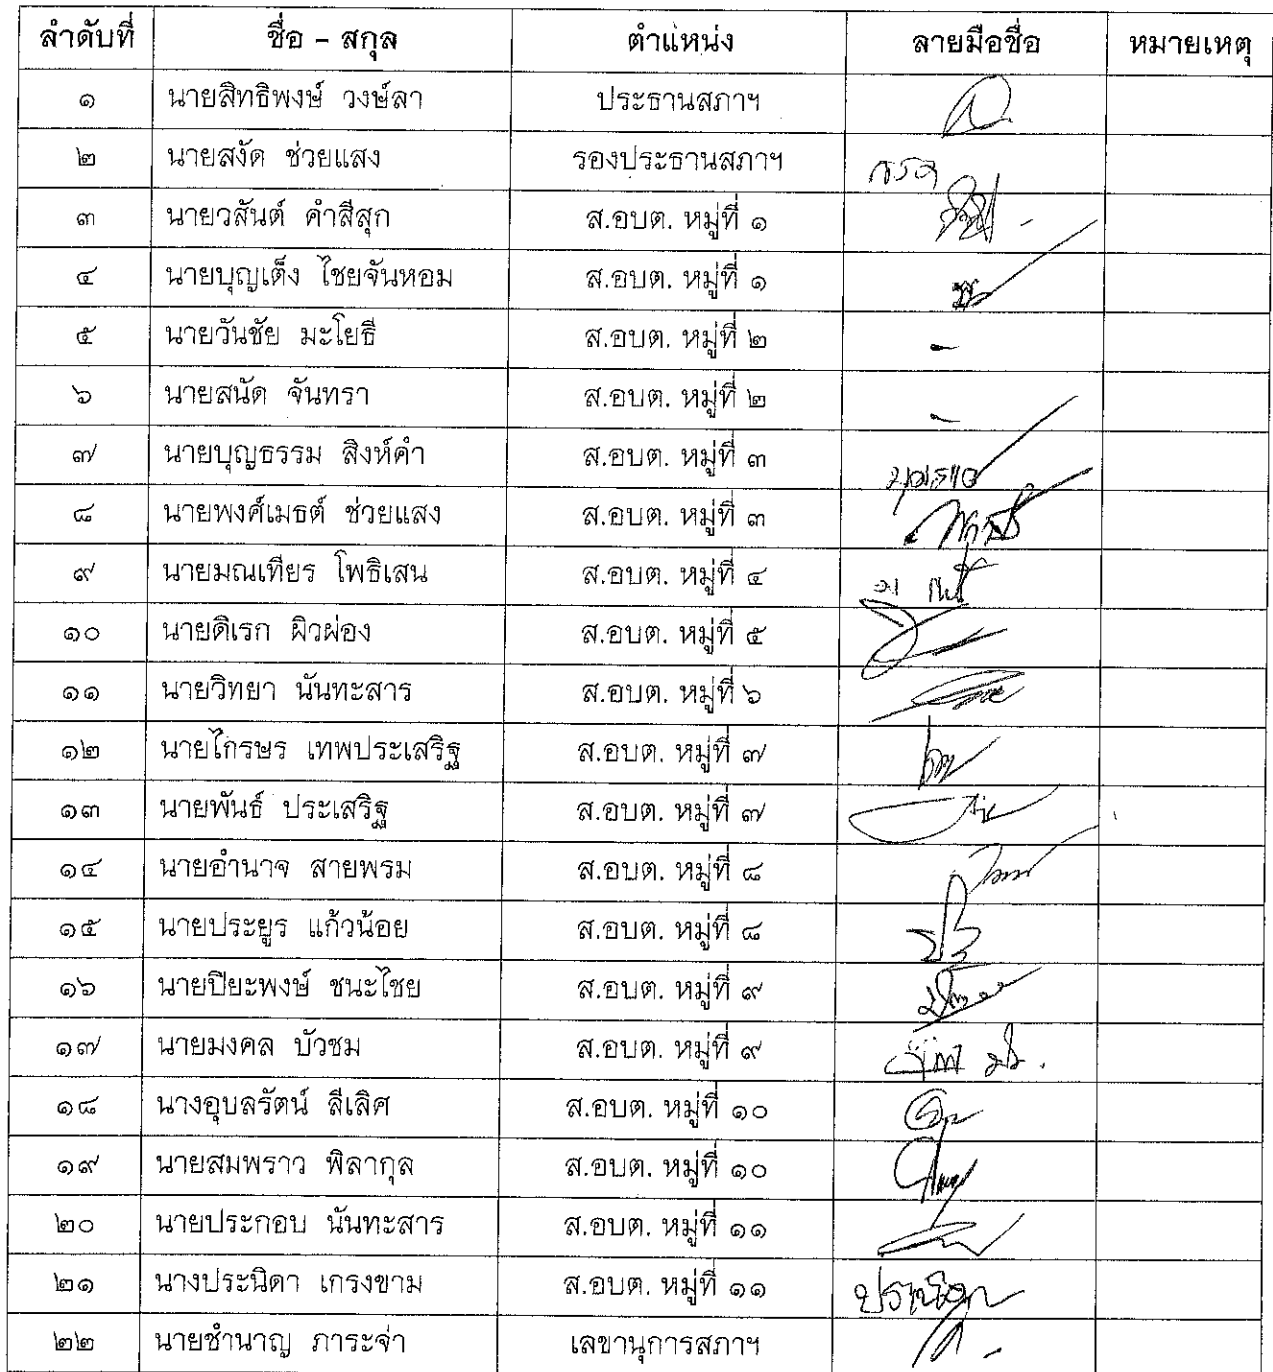 ลำดับที่ ชื่อ – สกุล ตำแหน่ง ลายมือชื่อ หมายเหตุ
๑ นายสิทธิพงษ์ วงษ์ลา ประธานสภาฯ
๒ นายสงัด ช่วยแสง รองประธานสภาฯ
๓ นายวสันต์ คำสีสุก ส.อบต. หมู่ที่ ๑
๔ นายบุญเต็ง ไชยจันหอม ส.อบต. หมู่ที่ ๑
๕ นายวันชัย มะโยธี ส.อบต. หมู่ที่ ๒ -
๖ นายสนัด จันทรา ส.อบต. หมู่ที่ ๒ -
๗ นายบุญธรรม สิงห์คำ ส.อบต. หมู่ที่ ๓
๘ นายพงศ์เมธต์ ช่วยแสง ส.อบต. หมู่ที่ ๓
๙ นายมณเทียร โพธิเสน ส.อบต. หมู่ที่ ๔
๑๐ นายดิเรก ผิวผ่อง ส.อบต. หมู่ที่ ๕
๑๑ นายวิทยา นันทะสาร ส.อบต. หมู่ที่ ๖
๑๒ นายไกรษร เทพประเสริฐ ส.อบต. หมู่ที่ ๗
๑๓ นายพันธ์ ประเสริฐ ส.อบต. หมู่ที่ ๗
๑๔ นายอำนาจ สายพรม ส.อบต. หมู่ที่ ๘
๑๕ นายประยูร แก้วน้อย ส.อบต. หมู่ที่ ๘
๑๖ นายปิยะพงษ์ ชนะไชย ส.อบต. หมู่ที่ ๙
๑๗ นายมงคล บัวชม ส.อบต. หมู่ที่ ๙
๑๘ นางอุบลรัตน์ ลีเลิศ ส.อบต. หมู่ที่ ๑๐
๑๙ นายสมพราว พิลากุล ส.อบต. หมู่ที่ ๑๐
๒๐ นายประกอบ นันทะสาร ส.อบต. หมู่ที่ ๑๑
๒๑ นางประนิดา เกรงขาม ส.อบต. หมู่ที่ ๑๑ ประนิดา
๒๒ นายชำนาญ ภาระจ่า เลขานุการสภาฯ